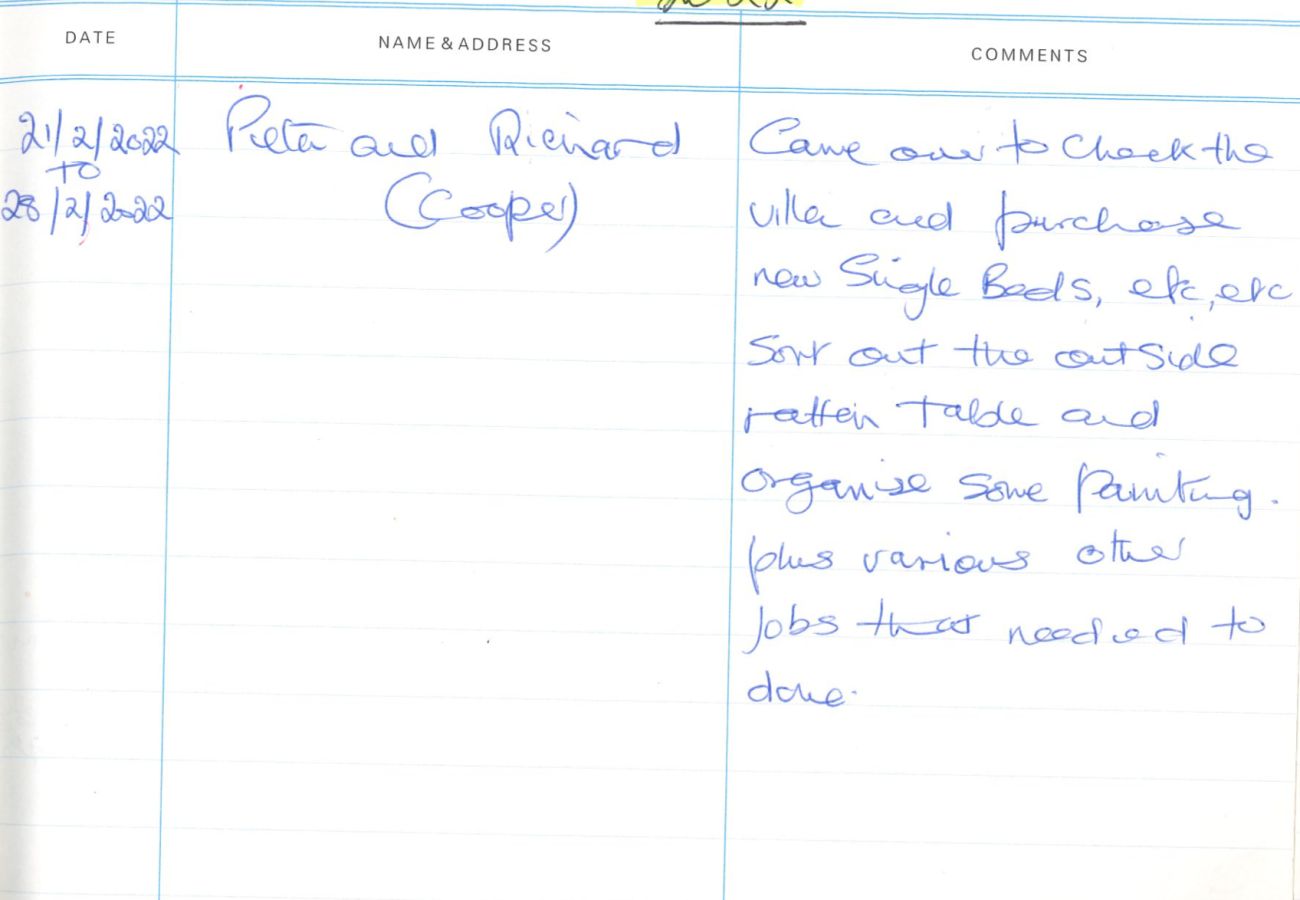 DATE NAME & ADDRESS COMMENTS
21/2/2022 and Richard Came over to check the
TO
28/2/2022 (Cooper) villa and purchase
new Single Beds, etc, etc
Sort out the outside
ratten Table and
organise some painting.
plus various other
jobs that needed to
done.